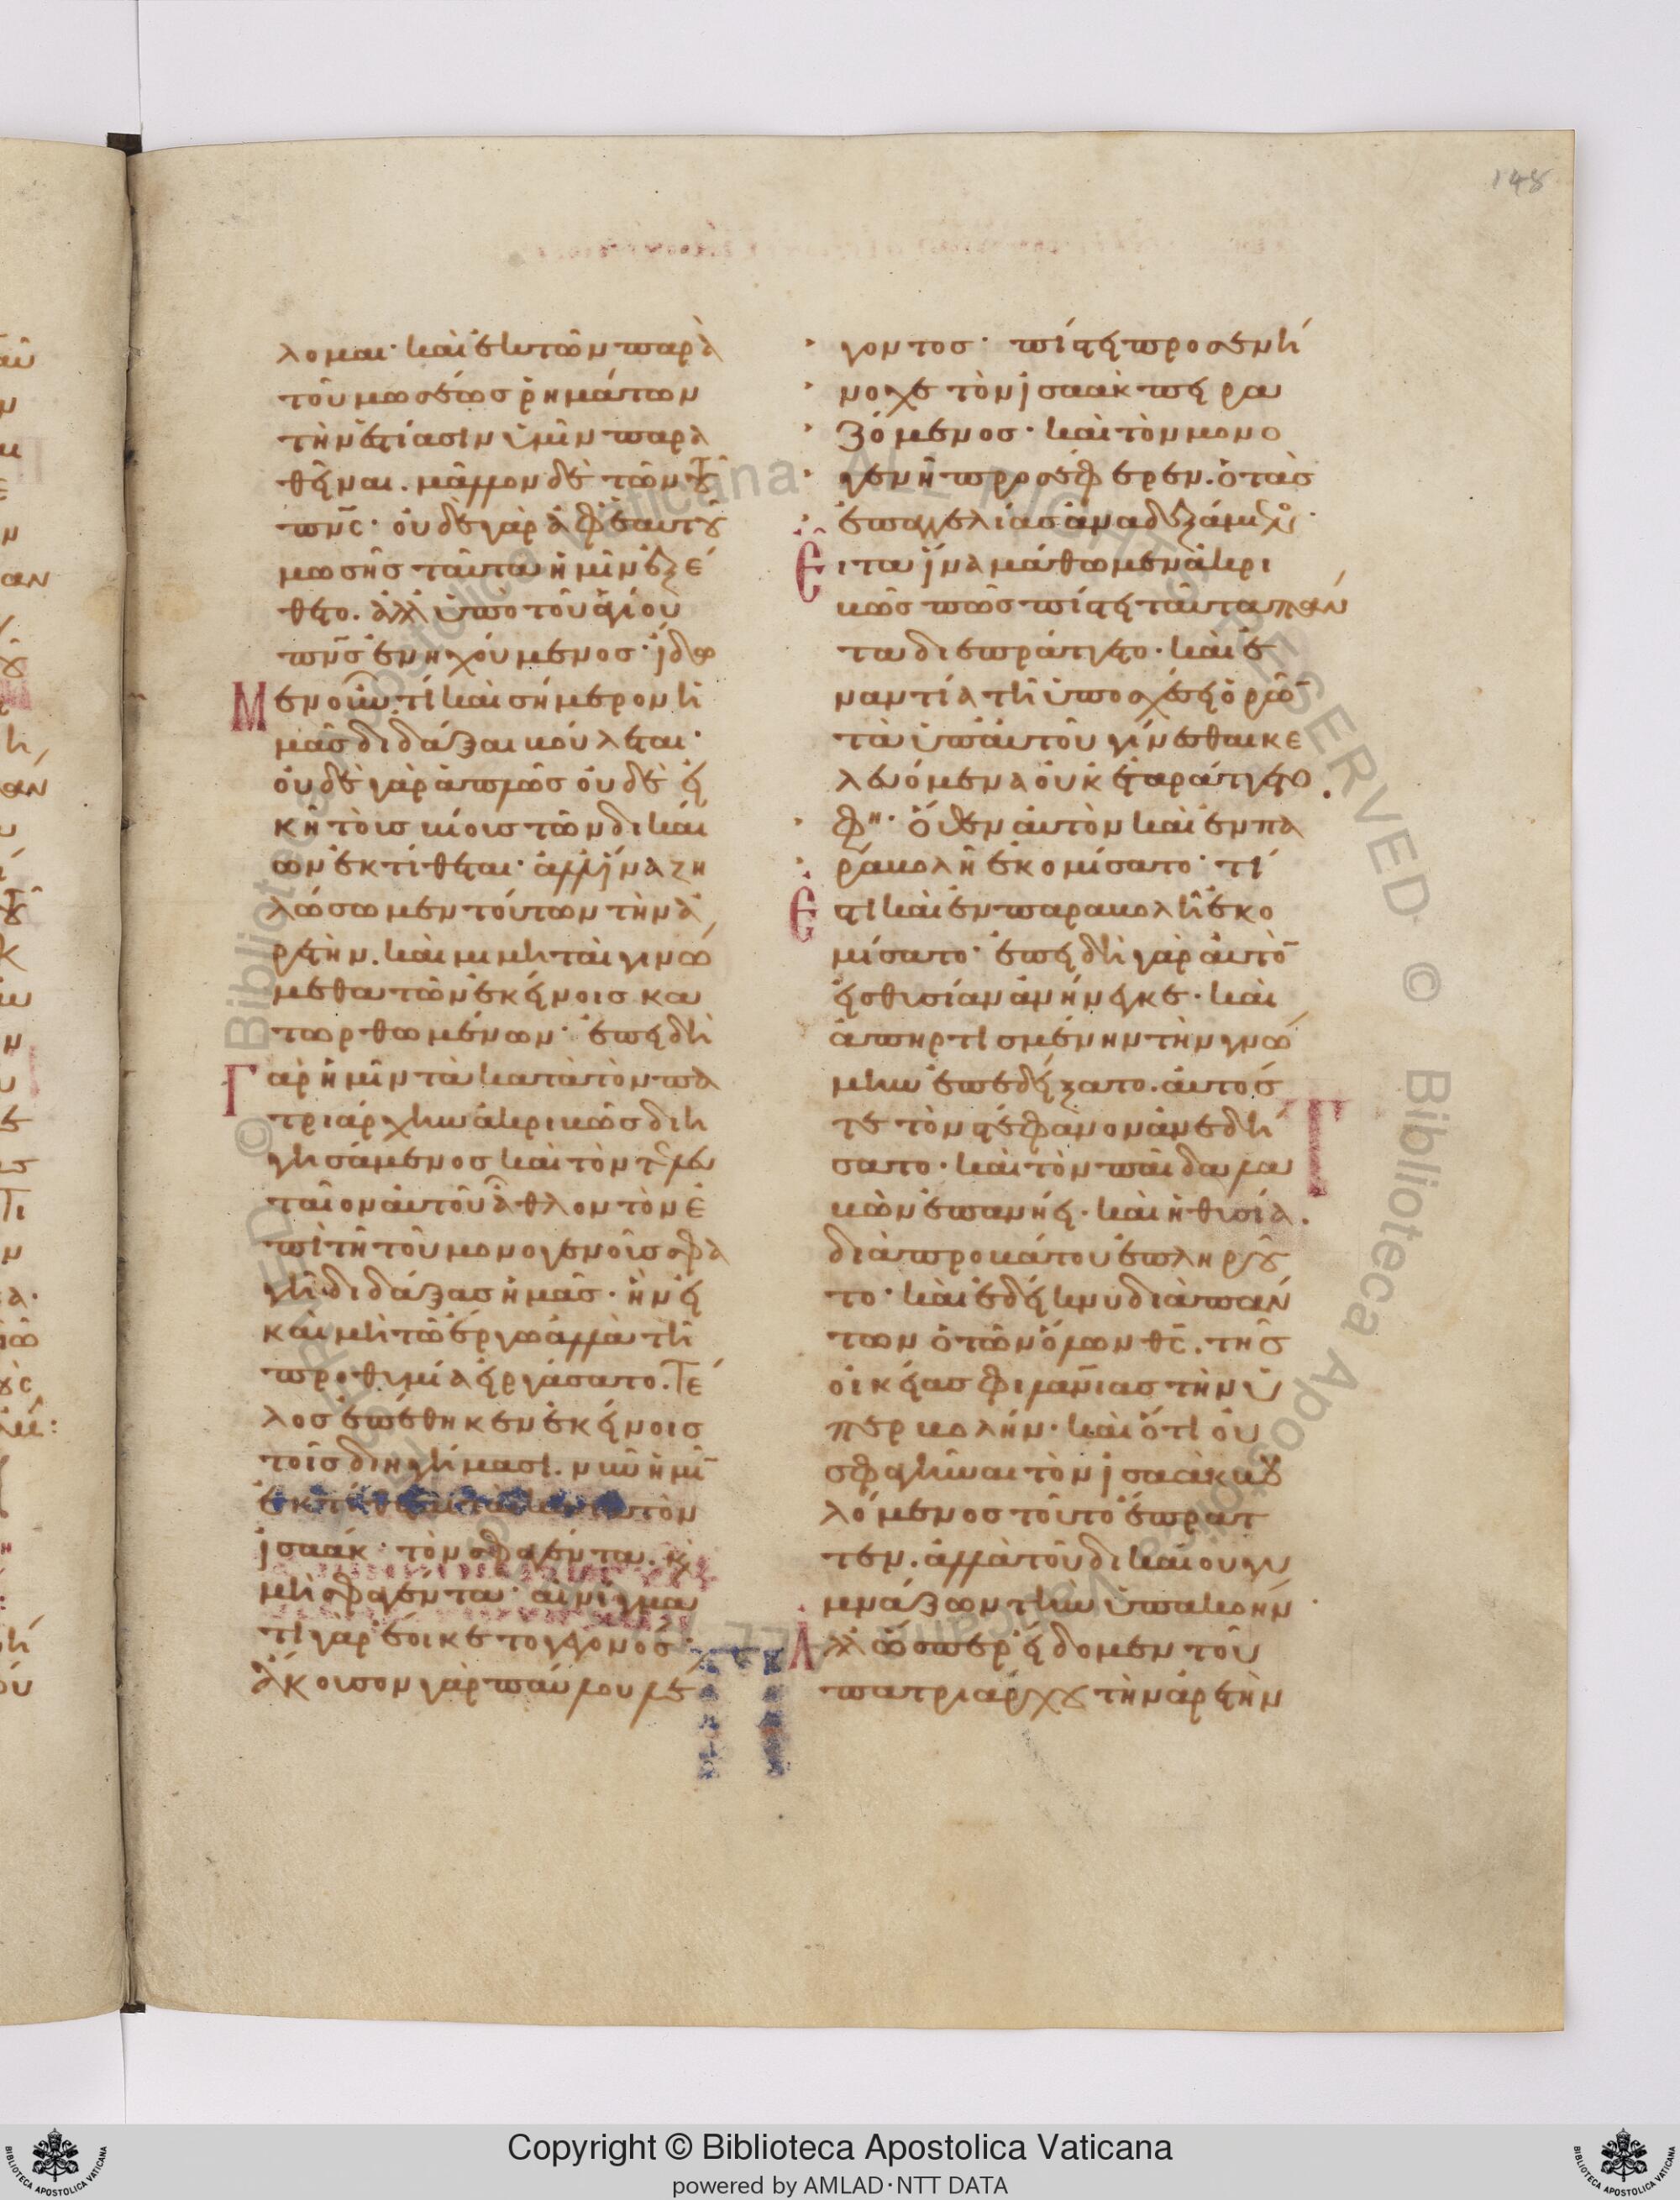 148
λομαι· καὶ ἐκ τῶν παρὰ
τοῦ μωσέως ῥημάτων
τὴν ἑστίασιν ὑμῖν παρα
θεῖναι. μᾶλλον δὲ τῶν τοῦ
πνς· οὐδὲ γὰρ ἀφ ἑαυτοῦ
μωσῆς ταῦτα ἡμῖν ἐξέ
θετο. ἀλλ ὑπὸ τοῦ ἁγίου
πνς ἐνηχούμενος· ἴδω
μεν οὖν τί καὶ σήμερον ἡ
μᾶς διδάξαι βούλεται·
οὐδὲ γὰρ ἁπλῶς οὐδὲ εἰ
κῆ τοὺς βίους τῶν δικαί
ων ἐκτίθεται· ἀλλ ἵνα ζη
λώσωμεν τούτων τὴν ἀ
ρετὴν. καὶ μιμηταὶ γινώ
μεθα τῶν ἐκείνοις κα
τωρθωμένων· ἐπειδὴ
γὰρ ἡμῖν τὰ κατὰ τὸν πα
τριάρχην ἀκριβῶς διη
γησάμενος καὶ τὸν τελευ
ταῖον αὐτοῦ ἆθλον τὸν ἐ
πὶ τῆ τοῦ μονογενοῦς σφα
γῆ διδάξας ἡμᾶς· ἣν εἰ
καὶ μὴ τῶ ἔργω ἀλλὰ τῆ
προθυμία εἰργάσατο. τέ
λος ἐπέθηκεν ἐκείνοις
τοῖς διηγήμασι. νῦν ἡμῖν
ἐκτίθεται τὰ κατὰ τὸν
ἰσαάκ· τὸν σφαγέντα. κ
μὴ σφαγέντα· αἴνιγμα
τι γὰρ ἔοικε τὸ γεγονός·
ἄκουσον γὰρ παύλου λέ
γοντος· πίστει προσενή
νοχε τὸν ἰσαὰκ πειρα
ζόμενος· καὶ τὸν μονο
γενῆ προσέφερεν. ὁ τὰς
ἐπαγγελίας ἀναδεξάμενος·
εἶτα ἵνα μάθωμεν ἀκρι
βῶς πῶς πίστει ταῦτα πάν
τα διεπράττετο. καὶ ἐ
ναντία τῆ ὑποσχέσει ὁρῶν
τὰ ὑπ αὐτοῦ γίνεσθαι κε
λευόμενα οὐκ ἐταράττετο.
φη· ὅθεν αὐτὸν καὶ ἐν πα
ραβολῆ ἐκομίσατο· τί
ἐστι καὶ ἐν παραβολῆ ἐκο
μίσατο· ἐπειδὴ γὰρ αὐτὸν
εἰς θυσίαν ἀνήνεγκε. καὶ
ἀπηρτισμένην τὴν γνώ
μην ἐπεδείξατο. αὐτός
τε τὸν στέφανον ἀνεδή
σατο. καὶ τὸν παῖδα λα
βὼν ἐπανήει. καὶ ἡ θυσία.
διὰ προβάτου ἐπληροῦ
το· καὶ ἐδείκνυ διὰ πάν
των ὁ τῶν ὅλων θς. τῆς
οἰκείας φιλανίας τὴν ὑ
περβολήν. καὶ ὅτι οὐ
σφαγῆναι τὸν ἰσαὰκ βου
λόμενος τοῦτο ἔπρατ
τεν. ἀλλὰ τοῦ δικαίου γυ
μνάζων τὴν ὑπακοήν·
Ἀλλ ὥσπερ εἴδομεν τοῦ
πατριάρχου τὴν ἀρετὴν
Copyright © Biblioteca Apostolica Vaticana
powered by AMLAD·NTT DATA